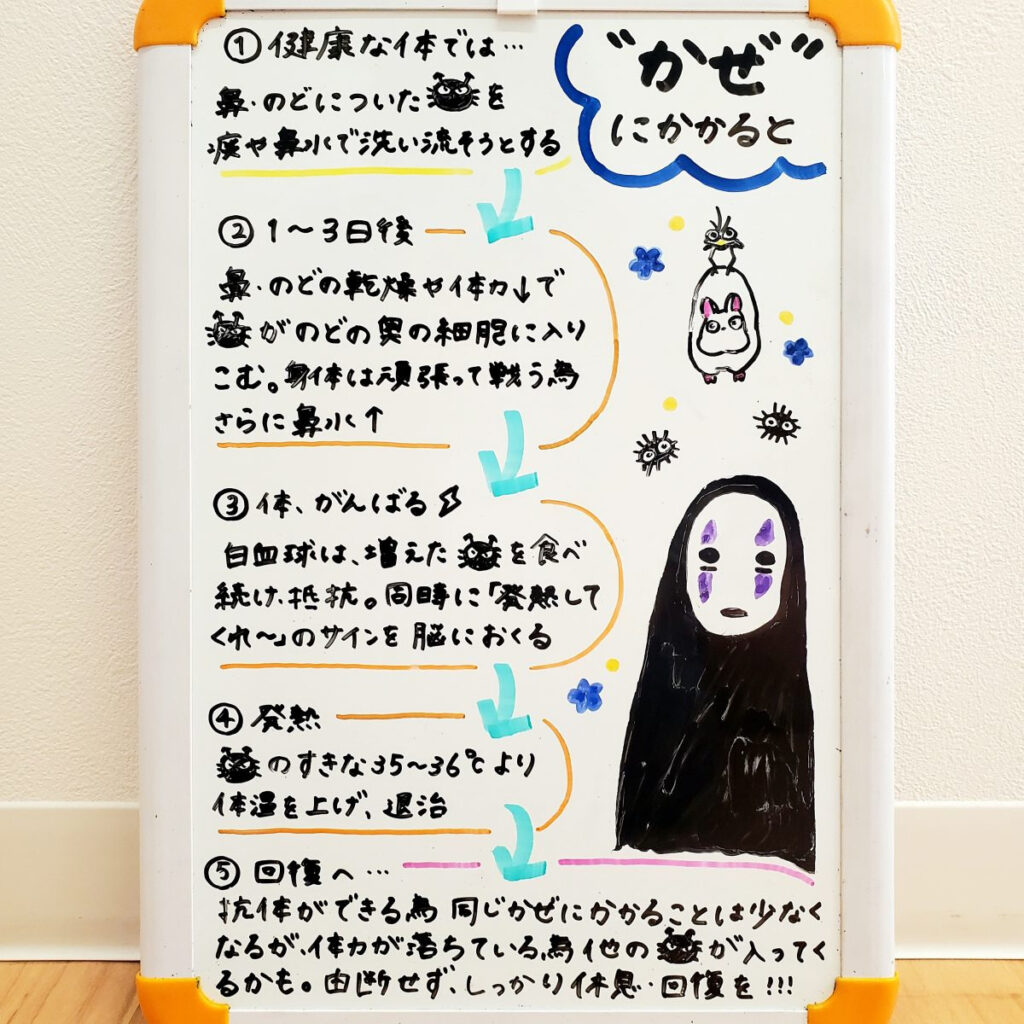 "かぜ"
にかかると
①健康な体では…
鼻・のどについた を
痰や鼻水で洗い流そうとする
②1〜3日後
鼻・のどの乾燥や体力↓で
がのどの奥の細胞に入り
こむ。身体は頑張って戦う為
さらに鼻水↑
③体、がんばる
白血球は、増えた を食べ
続け、抵抗。同時に「発熱して
くれ〜」のサインを脳におくる
④発熱
のすきな35〜36℃より
体温を上げ、退治
⑤回復へ…
抗体ができる為 同じかぜにかかることは少なく
なるが、体力が落ちている為 他の が入ってく
るかも。由断せず、しっかり休息・回復を!!!